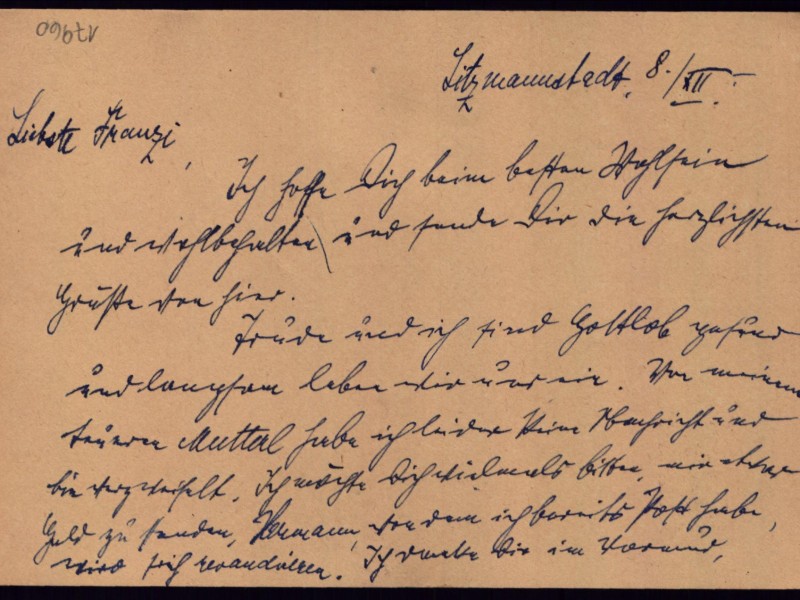 17960
Litzmannstadt, 8./XII.
Liebste Franzi,
Ich hoffe Dich beim besten Wohlsein
und wohlbehalten und sende Dir die herzlichsten
Grüße von hier.
Trude und ich sind Gottlob gesund
und langsam leben wir uns ein. Von meinem
teueren Mutterl habe ich leider keine Nachricht und
bin verzweifelt. Ich möchte Dich vielmals bitten, mir etwas
Geld zu senden, Hermann, von dem ich bereits Post habe,
wird sich revanchieren. Ich danke Dir im Voraus,